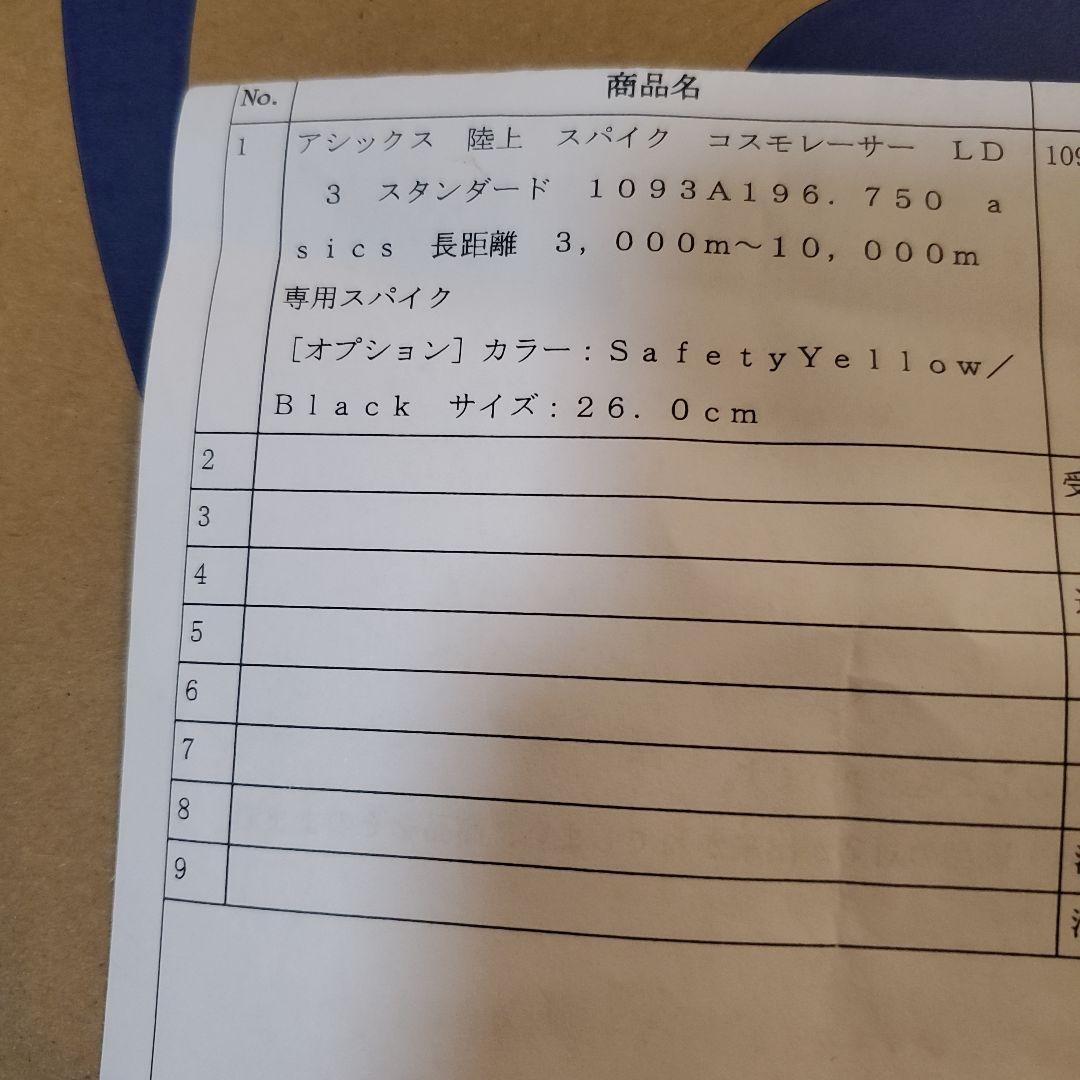 No. 商品名
1 アシックス 陸上 スパイク コスモレーサー LD 109
3 スタンダード 1093A196.750 a
sics 長距離 3,000m〜10,000m
専用スパイク
[オプション]カラー:SafetyYellow/
Black サイズ:26.0cm
2
3
4
5
6
7
8
9